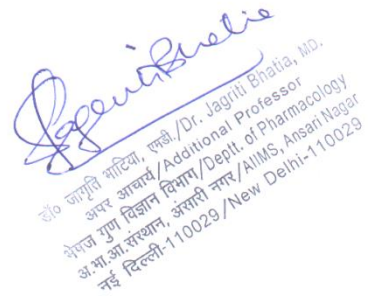 Jagriti Bhatia
डॉ० जागृति भाटिया, एमडी./Dr. Jagriti Bhatia, MD.
अपर आचार्य/Additional Professor
भेषज गुण विज्ञान विभाग/Deptt. of Pharmacology
अ.भा.आ.संस्थान, अंसारी नगर/AIIMS, Ansari Nagar
नई दिल्ली-110029/New Delhi-110029